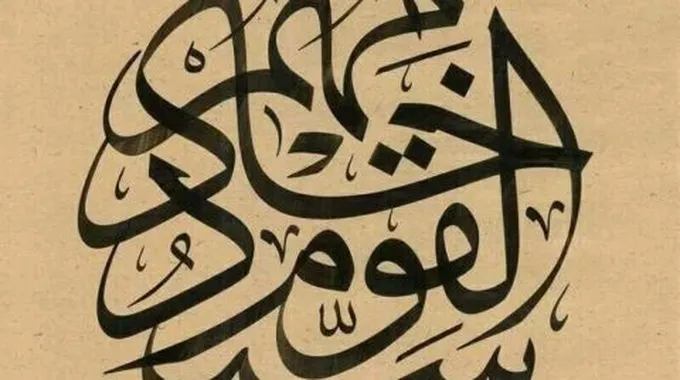 سيد القوم خادمهم